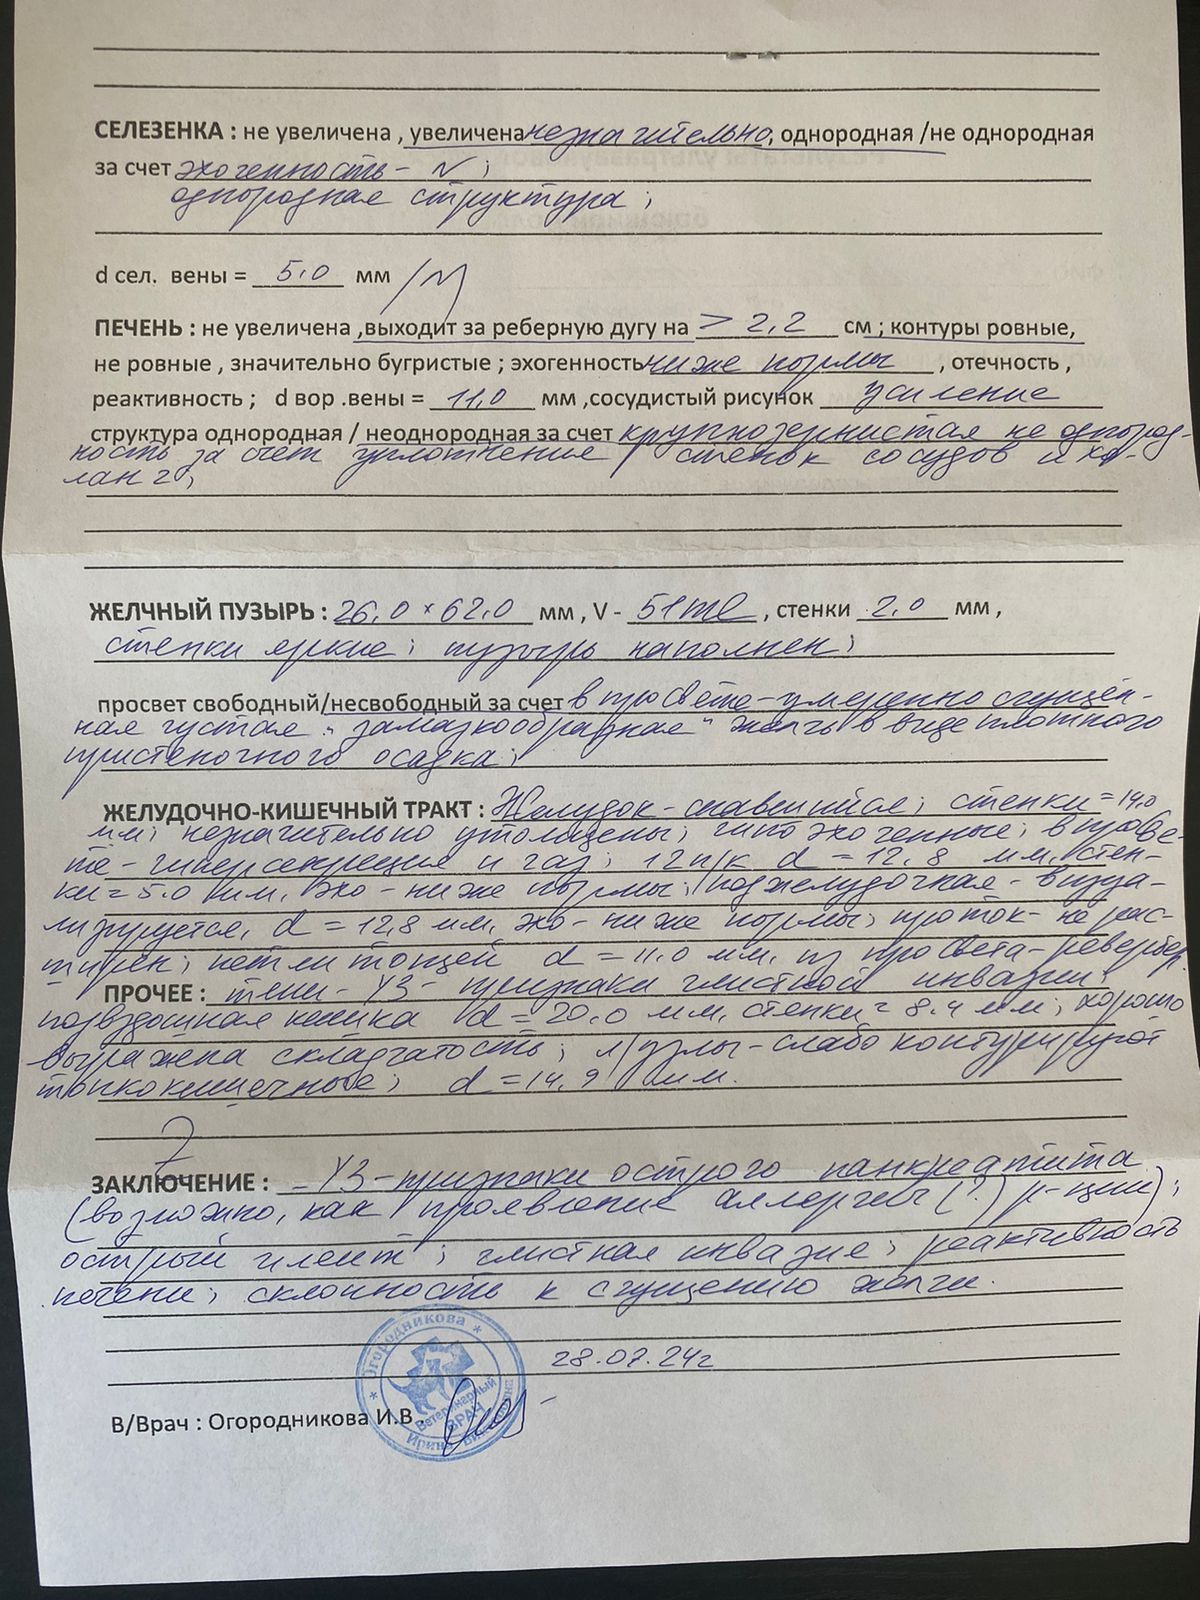 СЕЛЕЗЕНКА : не увеличена , увеличена незначительно, однородная /не однородная
за счет эхогенность - N ;
однородная структура ;
d сел. вены = 5,0 мм /N
ПЕЧЕНЬ : не увеличена ,выходит за реберную дугу на > 2,2 см ; контуры ровные,
не ровные , значительно бугристые ; эхогенность ниже нормы , отечность ,
реактивность ; d вор .вены = 11,0 мм ,сосудистый рисунок усиление
структура однородная / неоднородная за счет крупнозернистая не однород-
ность за счет уплотнения стенок сосудов и хо-
ланг;
ЖЕЛЧНЫЙ ПУЗЫРЬ : 26,0 × 62,0 мм , V - 51 ml , стенки 2,0 мм ,
стенки яркие; пузырь наполнен;
просвет свободный/несвободный за счет в просвете - умеренно сгущён-
ная густая "замазкообразная" желчь в виде плотного
пристеночного осадка;
ЖЕЛУДОЧНО-КИШЕЧНЫЙ ТРАКТ : Желудок - спавшийся; стенки = 14,0
мм; незначительно утолщены; гипоэхогенные; в просве-
те - гиперсекреция и газ; 12 п/к d = 12,8 мм, стен-
ки = 5,0 мм, эхо - ниже нормы; поджелудочная - визуа-
лизируется, d = 12,8 мм, эхо - ниже нормы; проток - не рас-
ширен; петли тощей d = 11,0 мм, из просвета - ревербер.
ПРОЧЕЕ : тени - УЗ - признаки глистной инвазии;
подвздошная кишка d = 20,0 мм, стенки = 8,4 мм; хорошо
выражена складчатость; л/узлы - слабо контурируют
тонкокишечные; d = 14,9 мм.
ЗАКЛЮЧЕНИЕ : - УЗ - признаки острого панкреатита
(возможно, как проявление аллергич (?) р-ции);
острый илеит; глистная инвазия; реактивность
печени; склонность к сгущению желчи.
28.07.24г
В/Врач : Огородникова И.В.
Огородникова
Ветеринарный
ВРАЧ
Ирина